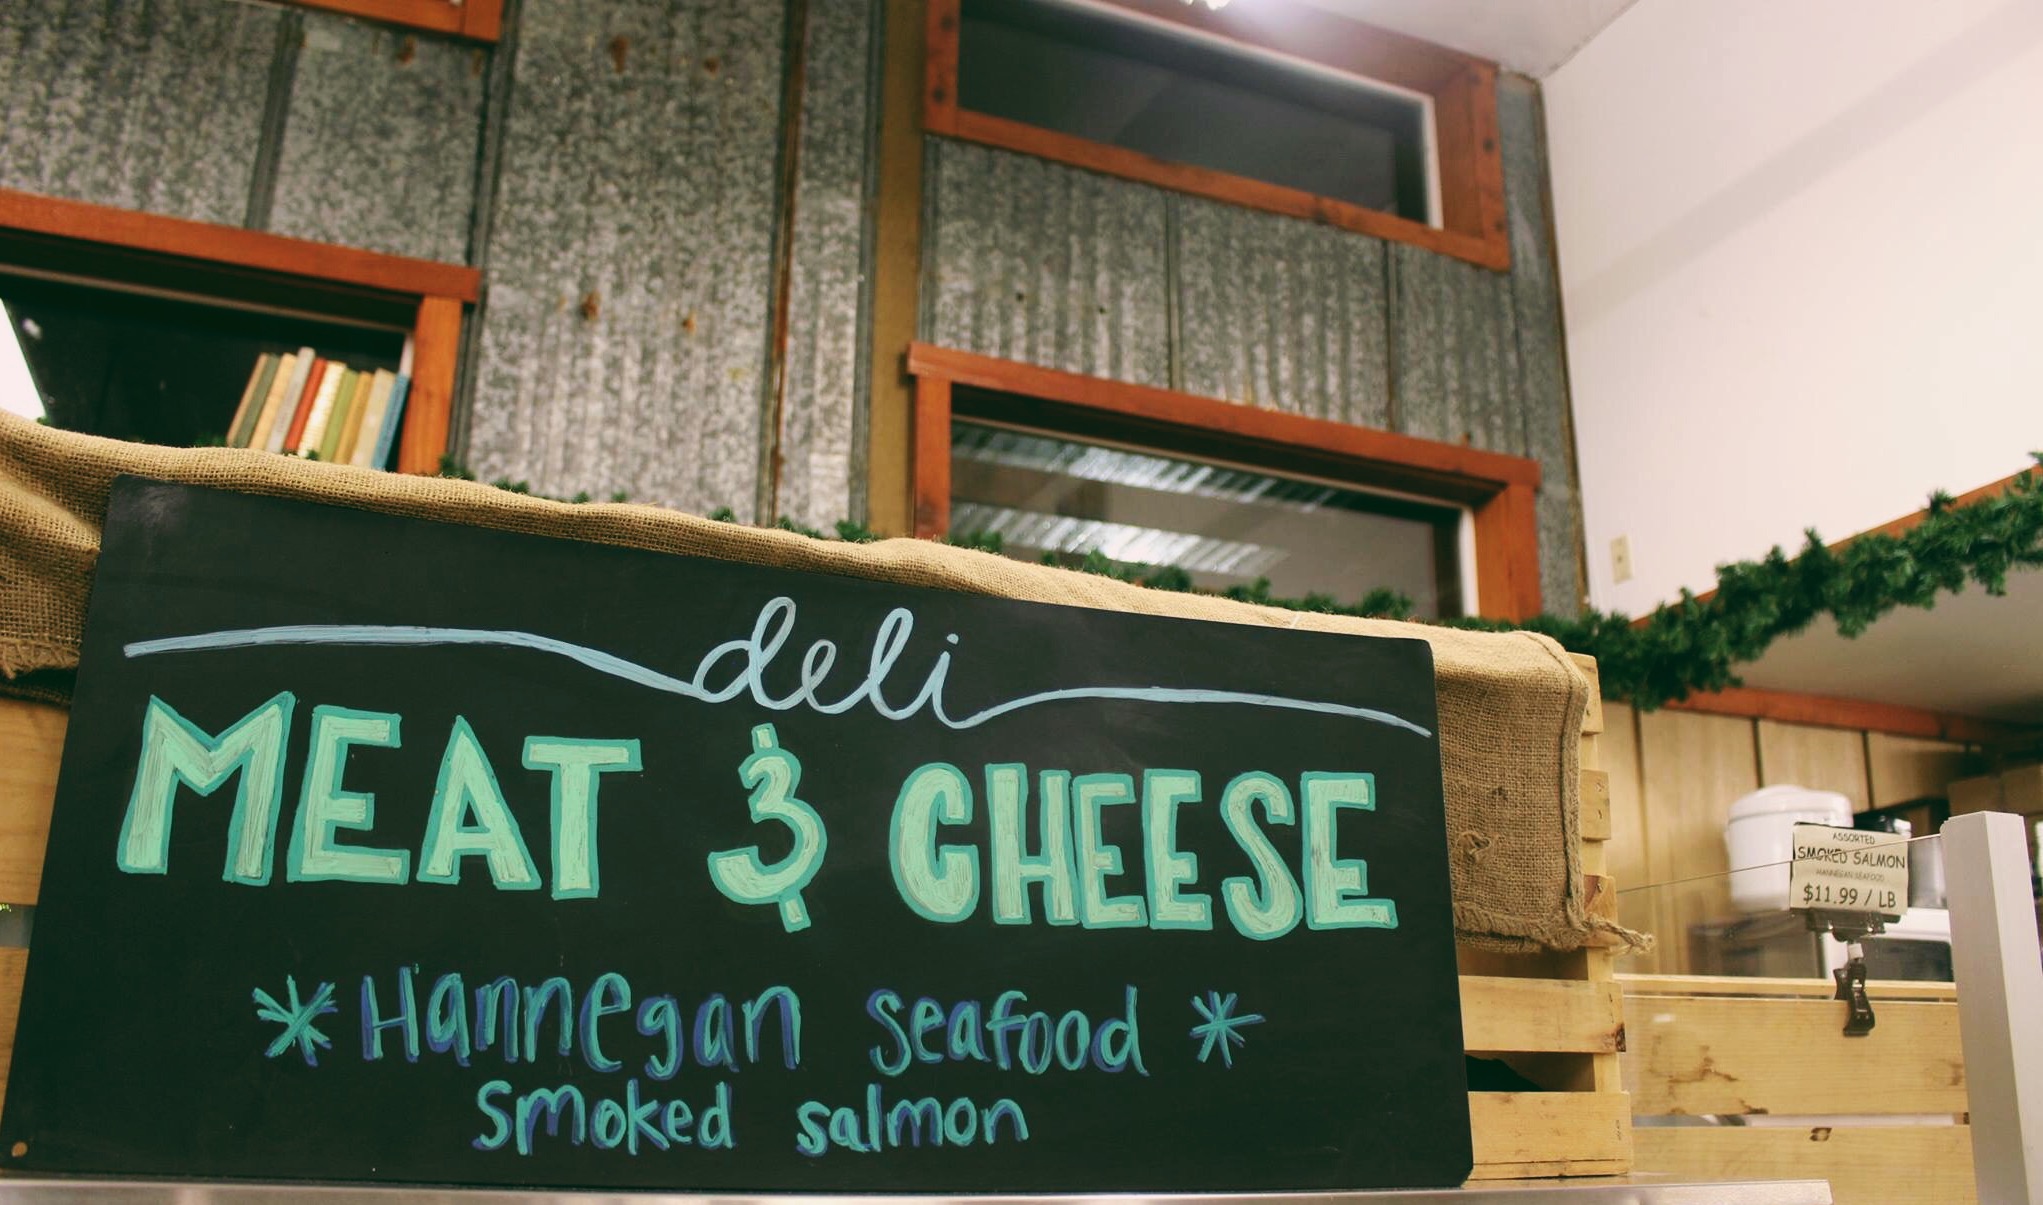 deli
MEAT & CHEESE
* Hannegan seafood *
smoked salmon
ASSORTED
SMOKED SALMON
HANNEGAN SEAFOOD
$11.99 / LB